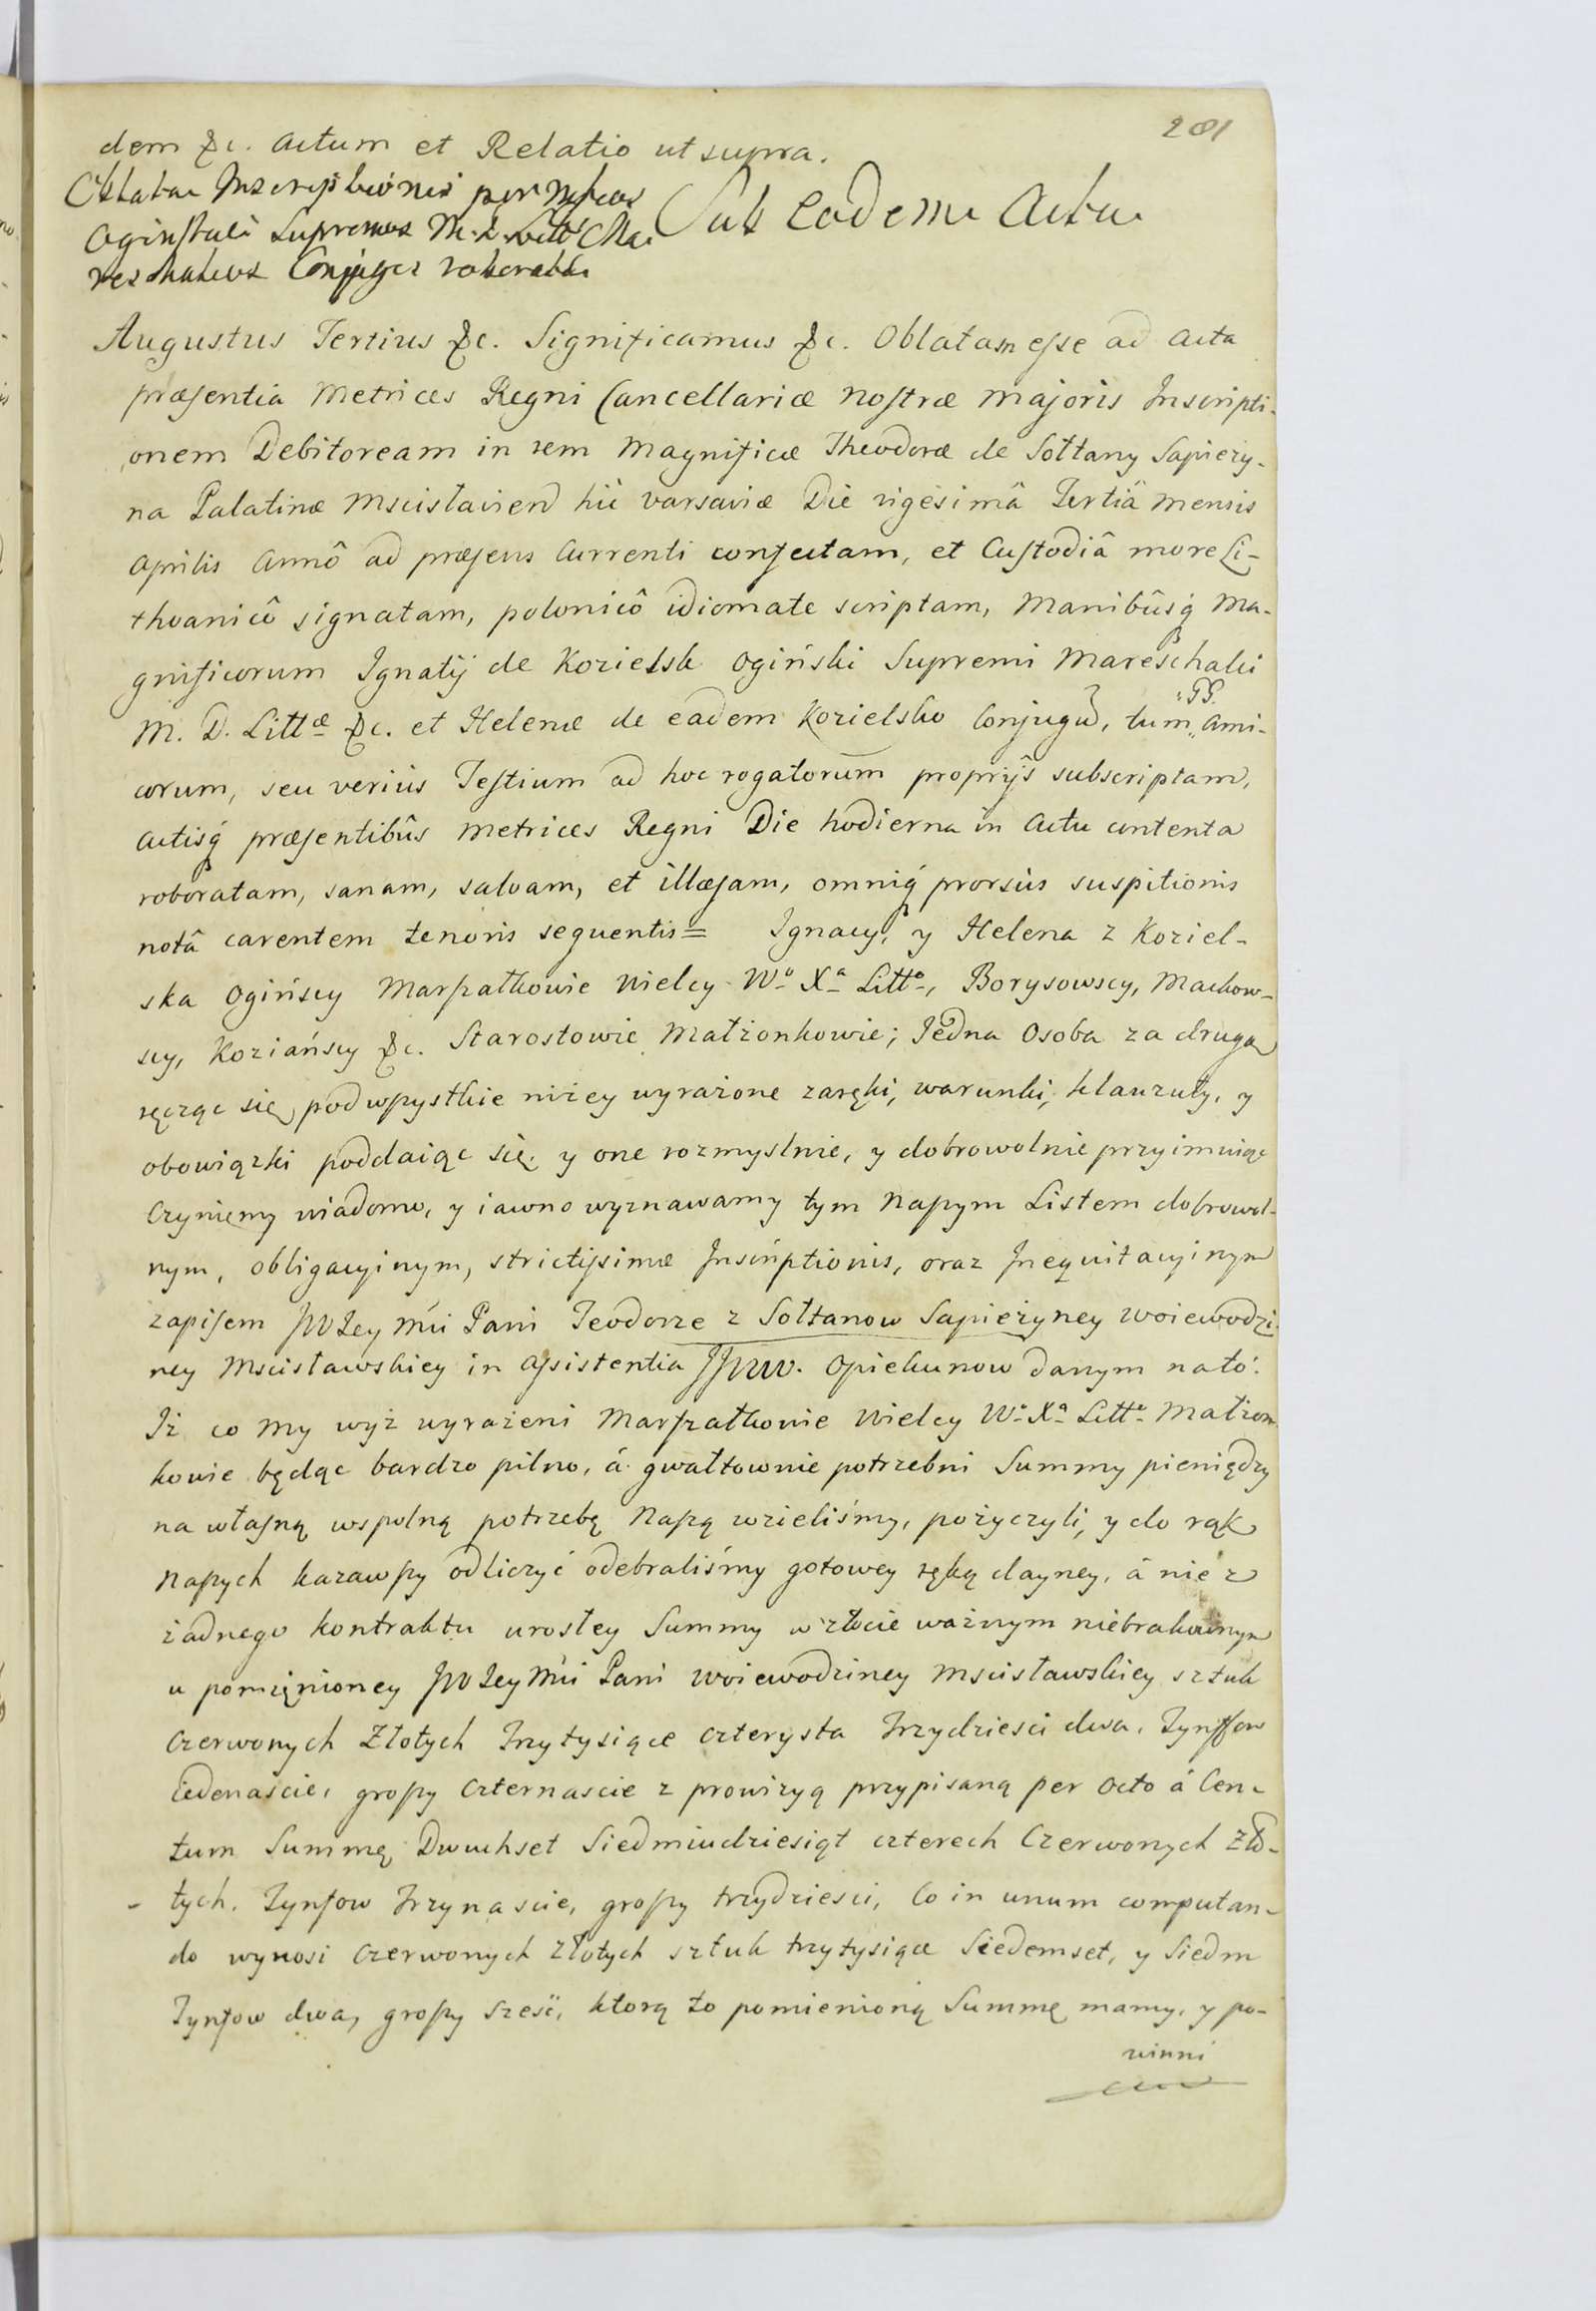 281
dem &c. Actum et Relatio ut supra.
Oblatae Inscriptionis per Mgficos
Oginskie Supremos M. D. Litt. Ma-
reschalcos Conjuges roboratae
Sub eodem Actu
Augustus Tertius &c. Significamus &c. Oblatam esse ad Acta
præsentia Metrices Regni Cancellariæ Nostræ Majoris Inscripti-
onem Debitoream in rem Magnificæ Theodoræ de Sołtany Sapiezy-
na Palatinæ Mscislavien hic Varsaviæ Die vigesimâ Tertiâ mensis
Aprilis Annô ad præsens Currenti confectam, et Custodiâ more Li-
thvanicô signatam, polonicô idiomate scriptam, Manibûsq Ma-
gnificorum Ignatij de Kozielsk Ogiński Supremi Mareschalci
M. D. Littæ &c. et Helenæ de eadem Kozielsko Conjugũ, tum PP. Ami-
corum, seu veriùs Testium ad hoc rogatorum proprijs subscriptam,
Actisq præsentibûs Metrices Regni Die hodierna in Actu contenta
roboratam, sanam, salvam, et illæsam, omniq prorsùs suspitionis
notâ carentem tenoris sequentis = Ignacy, y Helena z Koziel-
ska Ogińscy Marszałkowie Wielcy Wo Xa Litto, Borysowscy, Machow-
scy, Koziańscy &c. Starostowie Małżonkowie; Jedna Osoba za drugą
ręcząc się, pod wszystkie niżey wyrażone zaręki, warunki, klauzuły, y
obowiązki poddaiąc się, y one rozmyslnie, y dobrowolnie przyimuiąc
Czyniemy wiadomo, y iawno wyznawamy tym Naszym Listem dobrowol-
nym, obligacyinym, strictissimæ Inscriptionis, oraz Inequitacyinym
zapisem JWJey Mći Pani Teodorze z Sołtanow Sapieżyney Woiewodzi-
ney Mscisławskiey in Assistentia JJWW. Opiekunow danym na to:
Iż co my wyż wyrażeni Marszałkowie Wielcy Wo Xa Litto Małżon-
kowie będąc bardzo pilno, á gwałtownie potrzebni Summy pieniędzy
na własną wspolną potrzebę Naszą wzieliśmy, pożyczyli, y do rąk
Naszych kazawszy odliczyć odebraliśmy gotowey ręką dayney, á nie z
żadnego kontraktu urosłey Summy w złocie ważnym niebrakownym
u pomięnioney JWJeyMći Pani Woiewodziney Mscisławskiey sztuk
Czerwonych Złotych Trzytysiące czterysta Trzydziesci dwa, Tynffow
Iedenascie, groszy Czternascie z prowizyą przypisaną per Octo á Cen-
tum Summę Dwuchset Siedmiudziesiąt czterech Czerwonych Zło-
tych, Tynfow Trzynascie, groszy trzydziesci, Co in unum computan-
do wynosi Czerwonych Złotych sztuk trzytysiące Siedemset, y Siedm
Tynfow dwa, groszy szesć, ktorą to pomienioną Summę mamy, y po-
winni